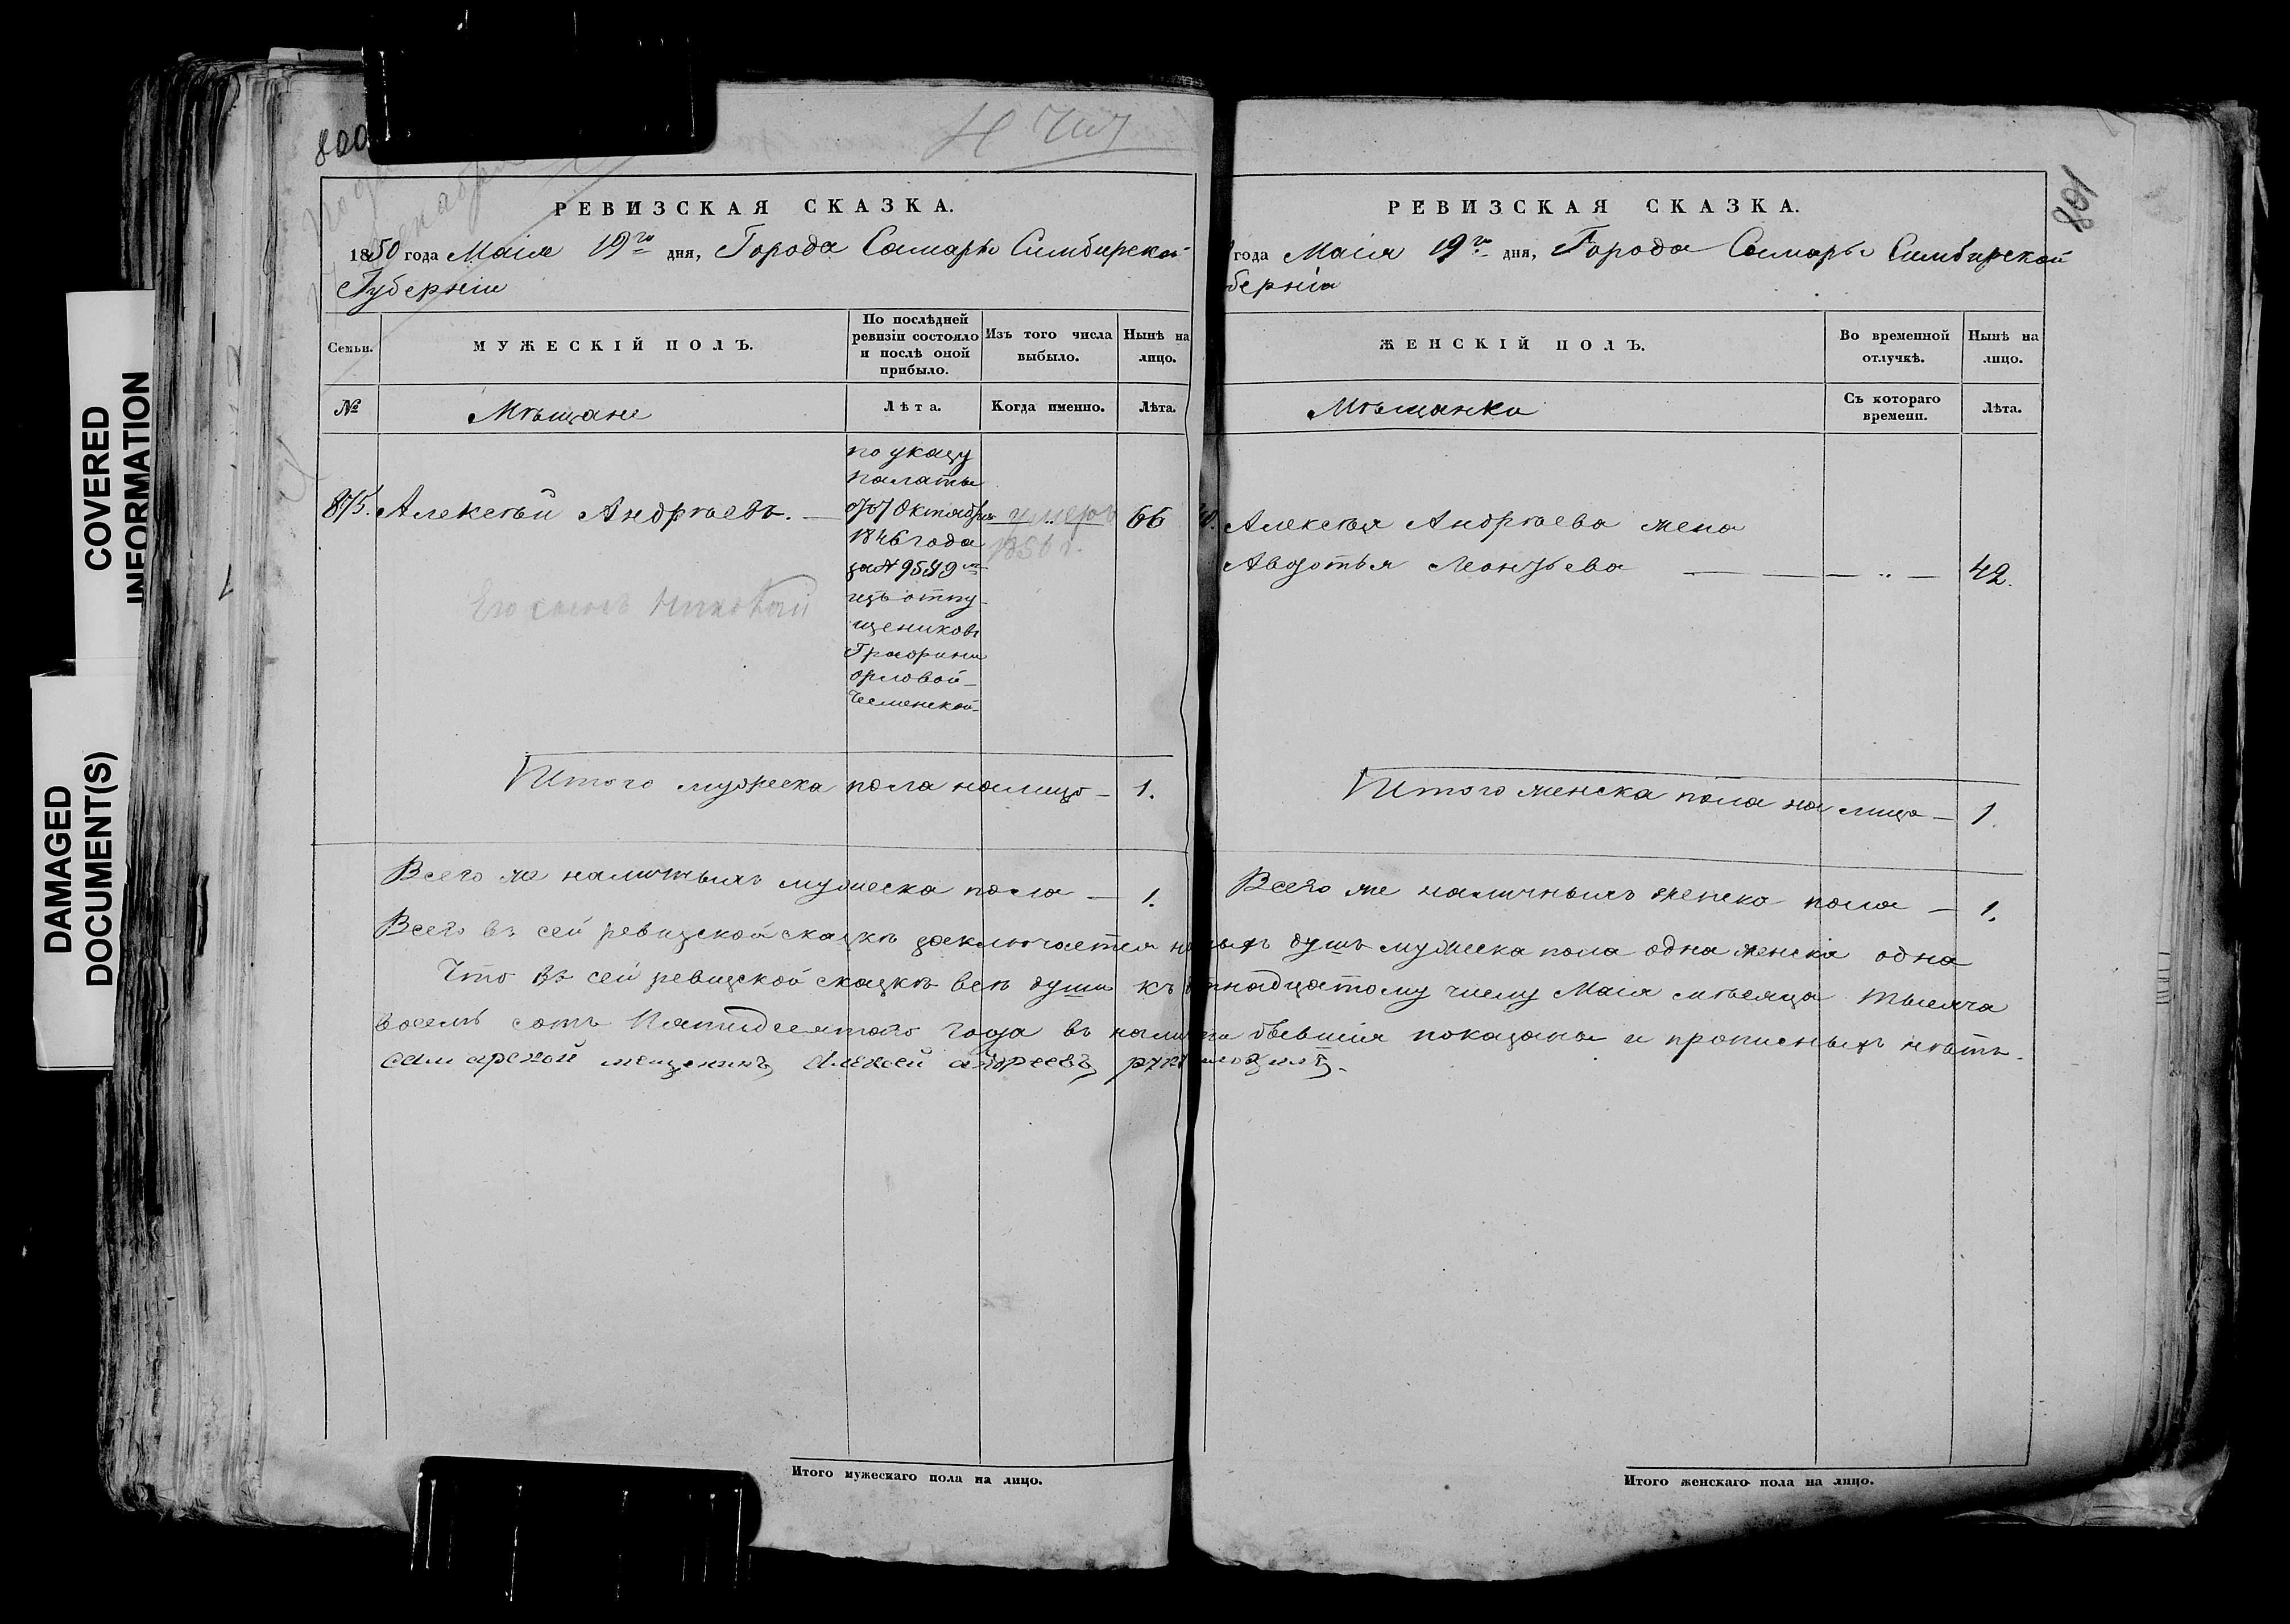 COVERED
INFORMATION
DAMAGED
DOCUMENT(S)
800
РЕВИЗСКАЯ СКАЗКА.
1850 года Маія 19го дня, Города Самары Симбирской
Губерніи
Семьи.
МУЖЕСКІЙ ПОЛЪ.
По послѣдней
ревизіи состояло
и послѣ оной
прибыло.
Изъ того числа
выбыло.
Нынѣ на
лицо.
№
Мѣщане
Лѣта.
Когда именно.
Лѣта.
875. Алексѣй Андрѣевъ. —
по указу
палаты
Октября
1846 года
за №
изъ отпу
щениковъ
Графини
Орловой —
Чесменской
умеръ
1856 г.
66
Его сынъ Николай
Итого мужеска пола налицо — 1.
Всего же наличныхъ мужеска пола — 1.
801
РЕВИЗСКАЯ СКАЗКА.
года Маія 19го дня, Города Самары Симбирской
берніи
ЖЕНСКІЙ ПОЛЪ.
Во временной
отлучкѣ.
Нынѣ на
лицо.
Мѣщанки
Съ котораго
времени.
Лѣта.
Алексѣя Андрѣева жена
Авдотья Леонтьева — — — „ — 42.
Итого женска пола на лицо — 1.
Всего же наличныхъ женска пола — 1.
Всего въ сей ревизской сказкѣ заключается душъ мужеска пола одна женска одна
Что въ сей ревизской сказкѣ всѣ души къ надцатому числу Маія мѣсяца тысяча
восемь сотъ Пятидесятого года въ наличи бывшія показаны и прописныхъ нѣтъ.
самарской мещенинъ Алексей андреевъ руку
Итого мужескаго пола на лицо.
Итого женскаго пола на лицо.